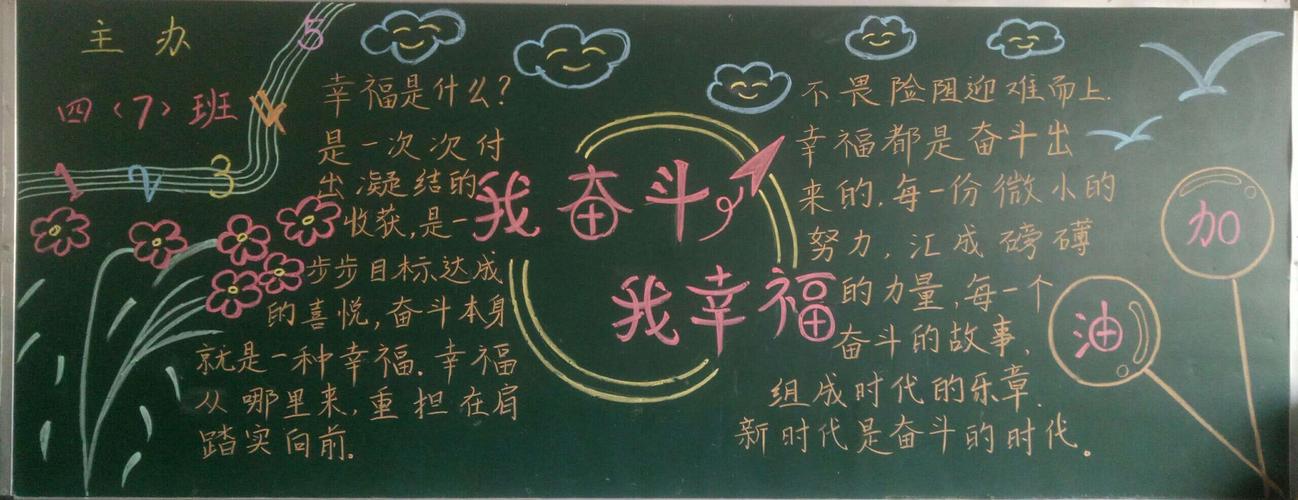 主办
四（7）班
1 2 3 4 5
幸福是什么?
是一次次付
出凝结的
收获,是一
步步目标达成
的喜悦,奋斗本身
就是一种幸福.幸福
从哪里来,重担在肩
踏实向前。
我奋斗
我幸福
不畏险阻迎难而上.
幸福都是奋斗出
来的.每一份微小的
努力,汇成磅礴
的力量,每一个
奋斗的故事,
组成时代的乐章.
新时代是奋斗的时代。
加
油